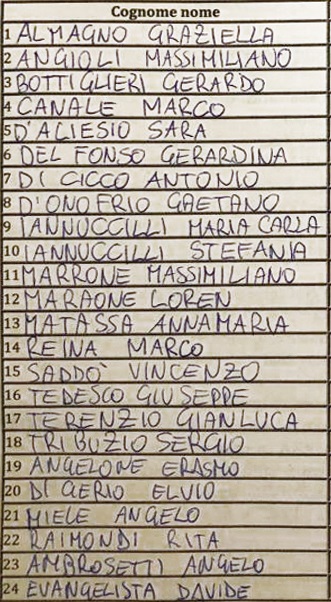 Cognome nome
1 ALMAGNO GRAZIELLA
2 ANGIOLI MASSIMILIANO
3 BOTTIGLIERI GERARDO
4 CANALE MARCO
5 D'ALIESIO SARA
6 DEL FONSO GERARDINA
7 DI CICCO ANTONIO
8 D'ONOFRIO GAETANO
9 IANNUCCILLI MARIA CARLA
10 IANNUCCILLI STEFANIA
11 MARRONE MASSIMILIANO
12 MARAONE LOREN
13 MATASSA ANNAMARIA
14 REINA MARCO
15 SADDO' VINCENZO
16 TEDESCO GIUSEPPE
17 TERENZIO GIANLUCA
18 TRIBUZIO SERGIO
19 ANGELONE ERASMO
20 DI GERIO ELVIO
21 MIELE ANGELO
22 RAIMONDI RITA
23 AMBROSETTI ANGELO
24 EVANGELISTA DAVIDE